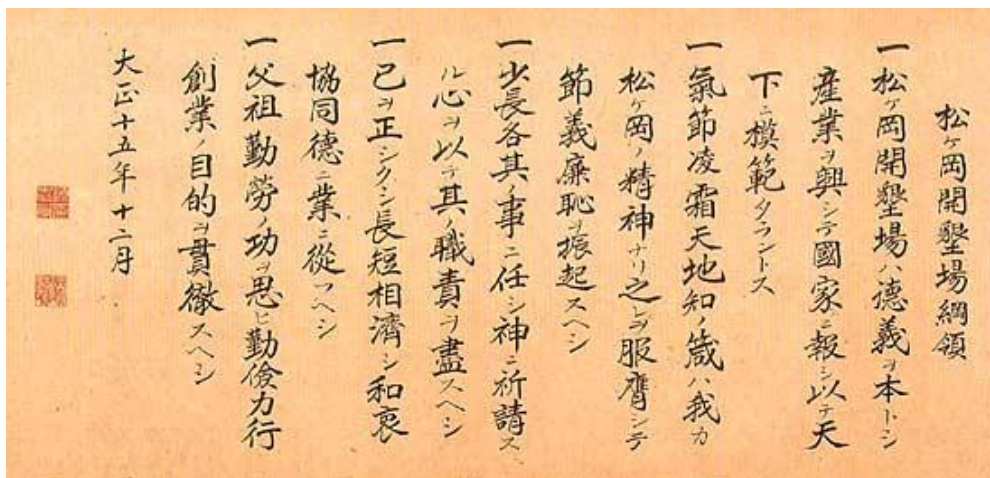 松ヶ岡開墾場綱領
一松ヶ岡開墾場ハ德義ヲ本トシ
產業ヲ興シテ國家ニ報シ以テ天
下ニ模範タラントス
一氣節凌霜天地知ノ箴ハ我カ
松ヶ岡ノ精神ナリ之レヲ服膺シテ
節義廉恥ヲ振起スヘシ
一少長各其ノ事ニ任シ神ニ祈請ス
ル心ヲ以テ其ノ職責ヲ盡スヘシ
一己ヲ正シクシ長短相濟シ和衷
協同德ニ業ニ從フヘシ
一父祖勤勞ノ功ヲ思ヒ勤儉力行
創業ノ目的ヲ貫徹スヘシ
大正十五年十二月